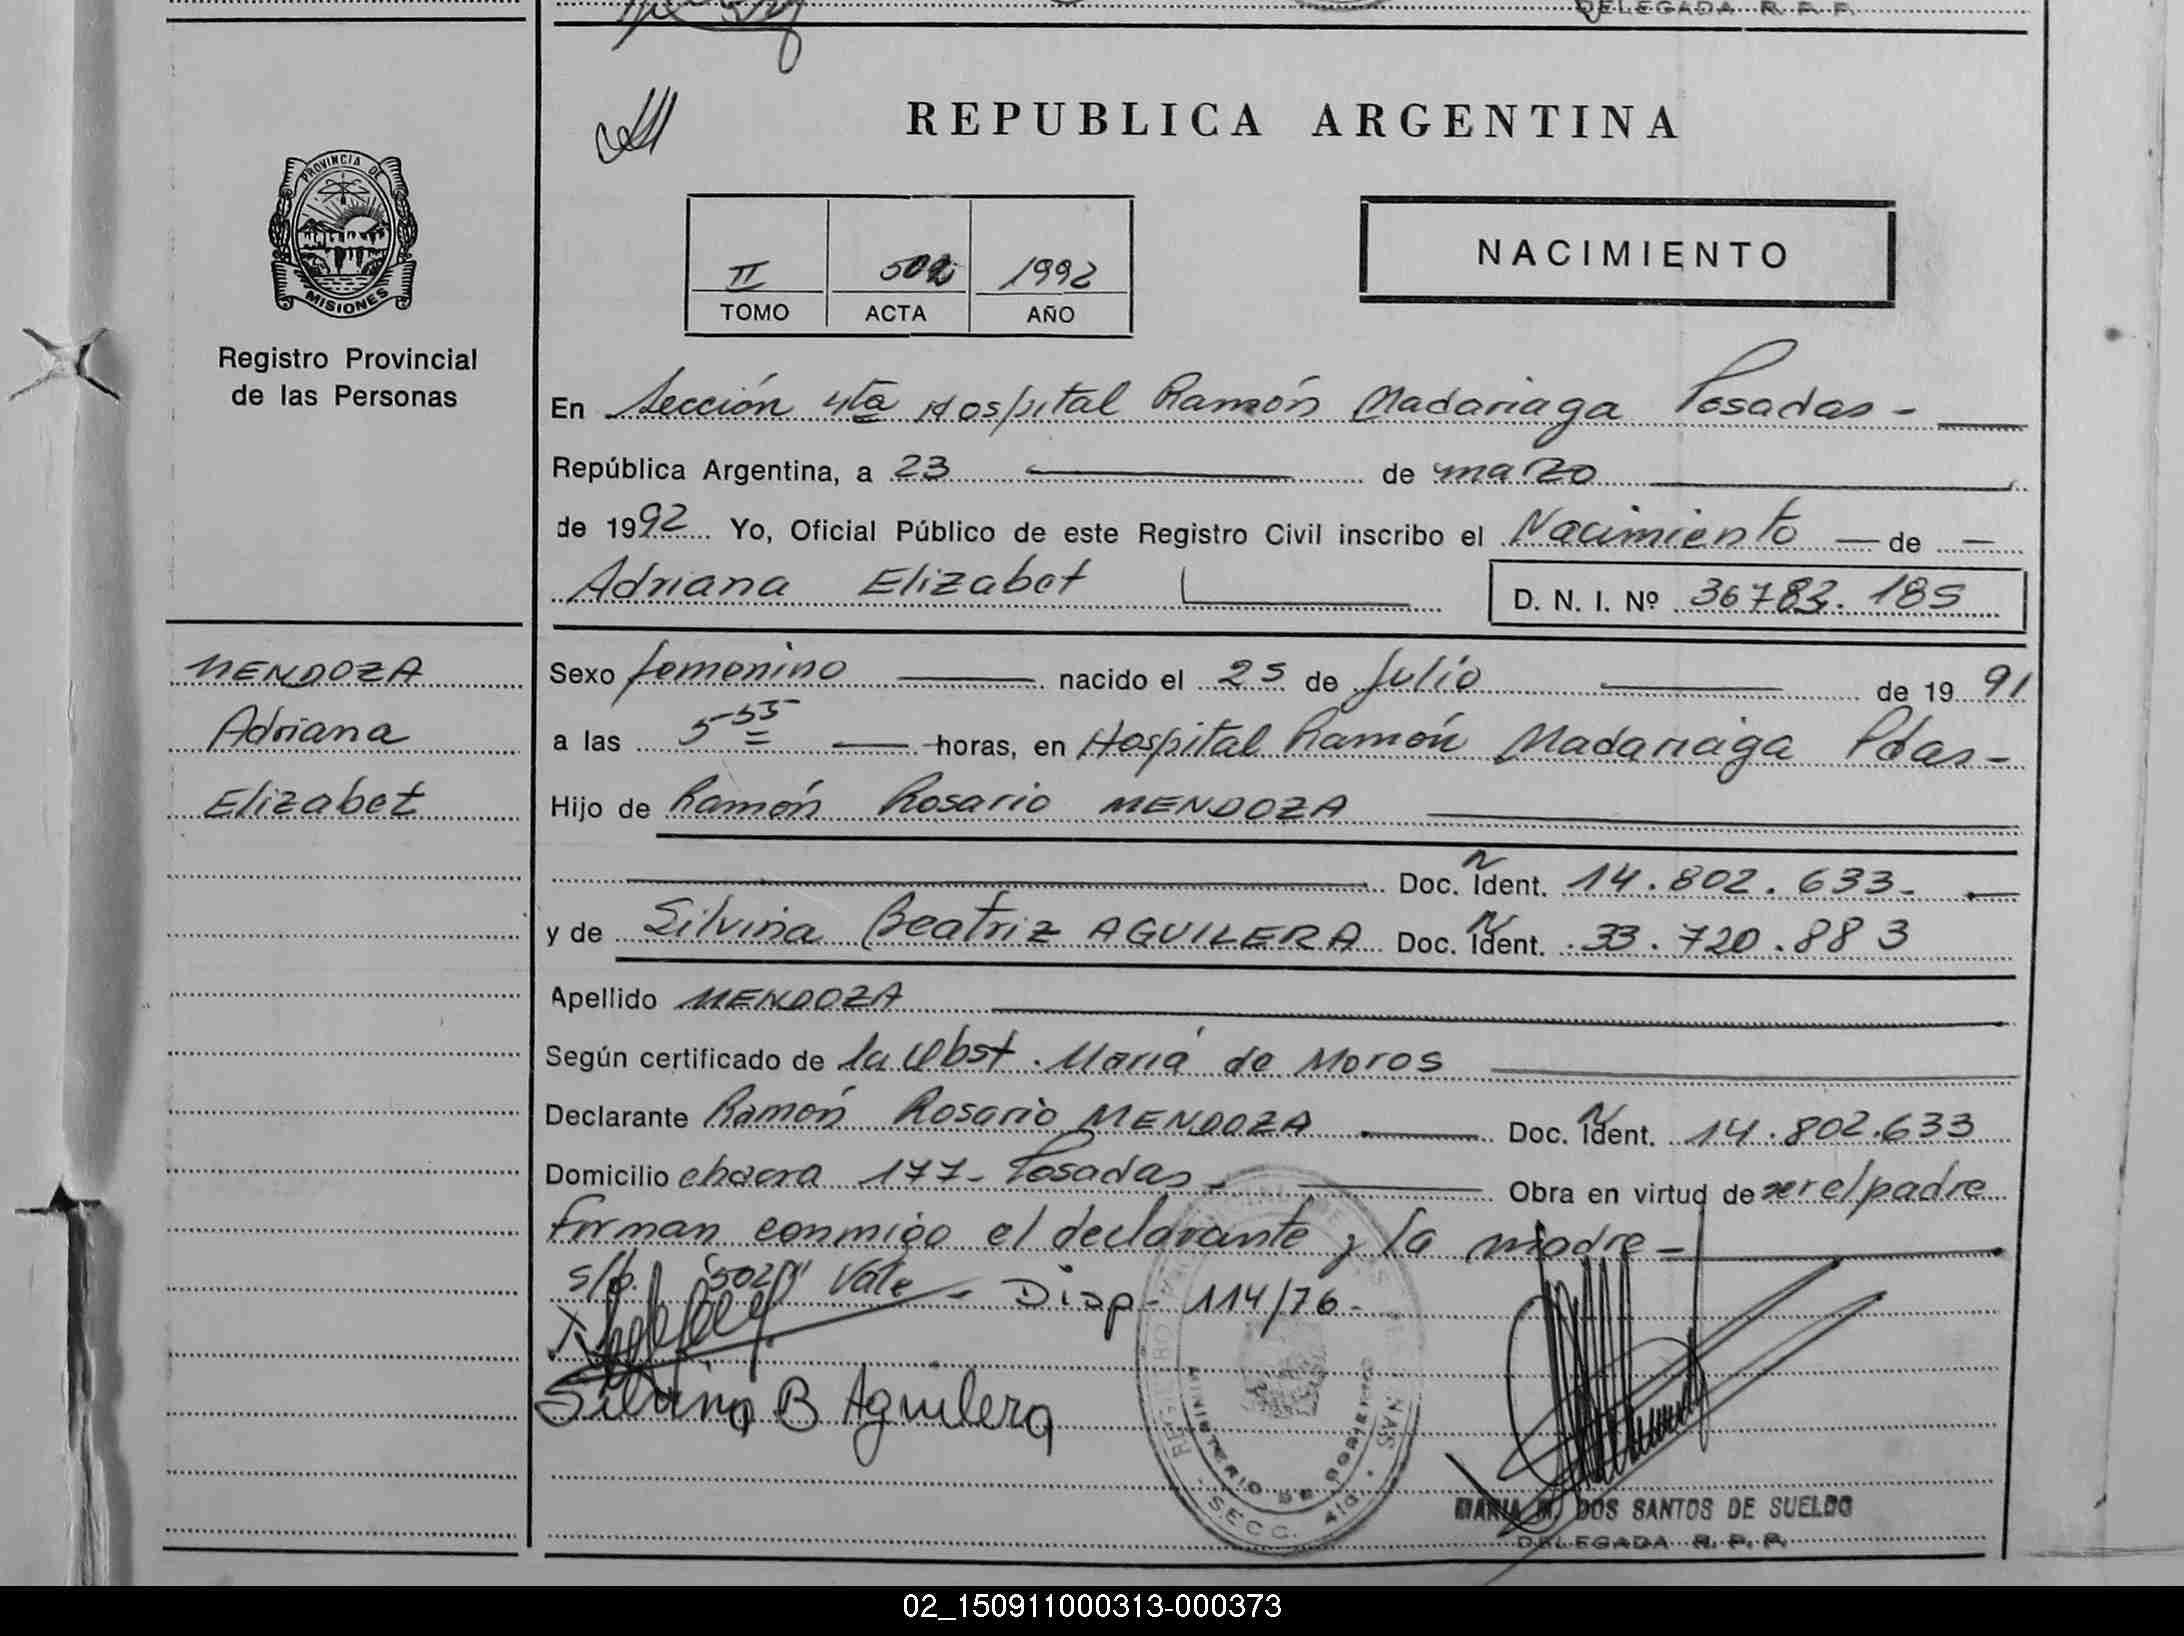 DELEGADA R. P. P.
REPUBLICA ARGENTINA
PROVINCIA DE
MISIONES
Registro Provincial
de las Personas
II 502 1992
TOMO ACTA AÑO
NACIMIENTO
En Sección 4ta Hospital Ramón Madariaga Posadas -
República Argentina, a 23 de marzo
de 1992 Yo, Oficial Público de este Registro Civil inscribo el Nacimiento de
Adriana Elizabet D. N. I. Nº 36783.185
MENDOZA
Adriana
Elizabet
Sexo femenino nacido el 25 de Julio de 1991
a las 5 55 horas, en Hospital Ramón Madariaga Pdas-
Hijo de Ramón Rosario MENDOZA
Doc. Ident. 14.802.633-
y de Silvina Beatriz AGUILERA Doc. Ident. 33.720.883
Apellido MENDOZA
Según certificado de la Obst. María de Moros
Declarante Ramón Rosario MENDOZA Doc. Ident. 14.802.633
Domicilio chacra 177- Posadas- Obra en virtud de ser el padre
Firman conmigo el declarante y la madre-
s/b. "502" Vale - Disp- 114/76-
Silvina B Aguilera
MINISTERIO DE GOBIERNO
SECC. 4ta
MARIA M. DOS SANTOS DE SUELDO
DELEGADA R. P. P.
02_150911000313-000373